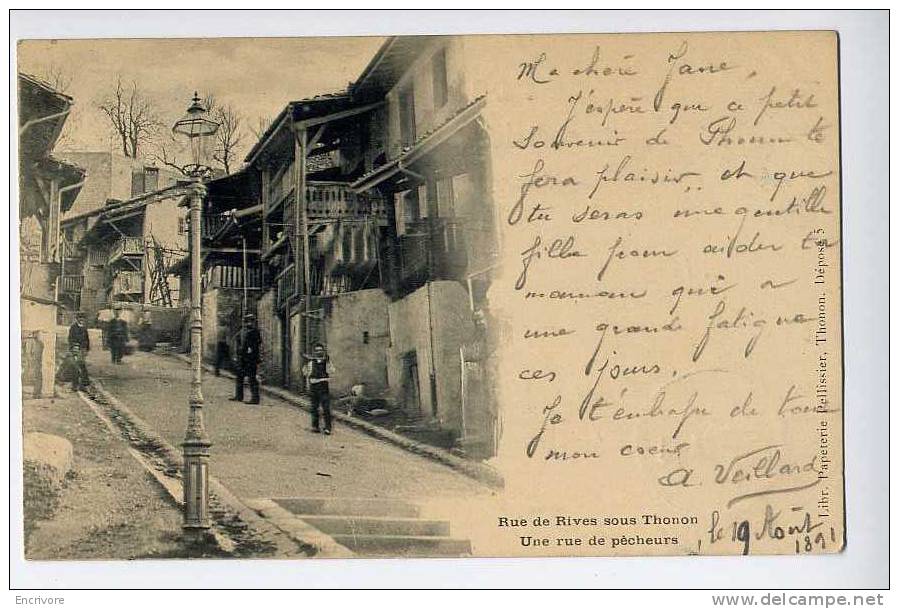 Ma chère Jane,
J'espère que ce petit
Souvenir de Thonon te
fera plaisir, et que
tu seras une gentille
fille pour aider ta
maman qui a
une grande fatigue
ces jours.
Je t'embrasse de tout
mon coeur
A. Veillard
le 19 Août
1891
Rue de Rives sous Thonon
Une rue de pêcheurs
Libr. Papeterie Pellissier, Thonon. Déposé 5
Encrivore
www.delcampe.net